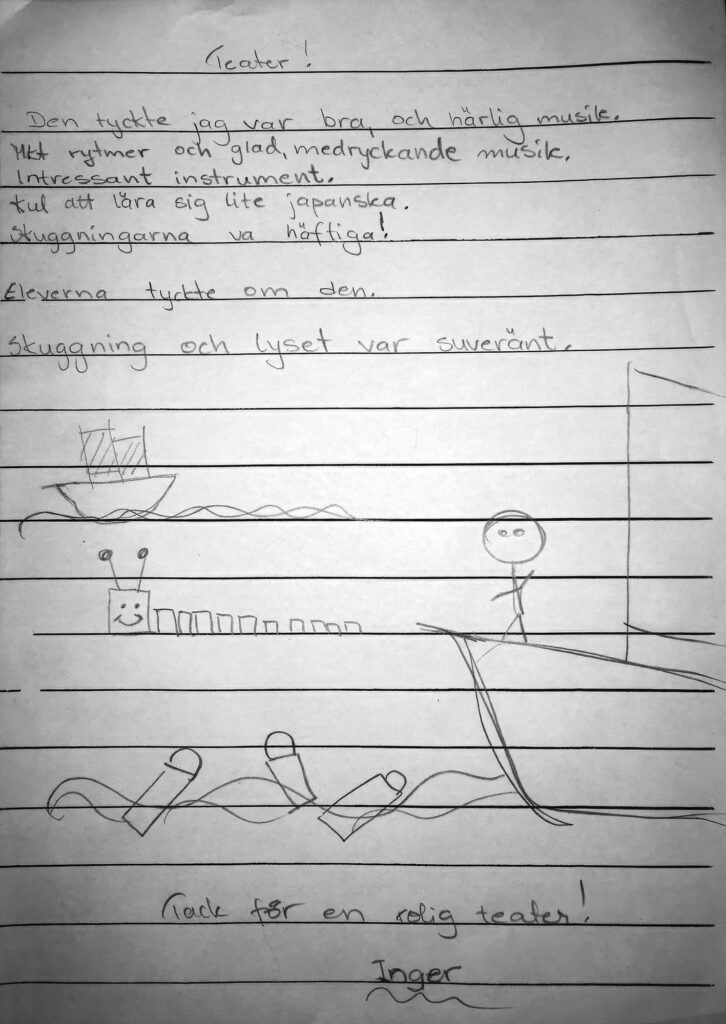 Teater!
Den tyckte jag var bra, och härlig musik.
rytmer och glad, medryckande musik.
Intressant instrument.
kul att lära sig lite japanska.
Skuggningarna va häftiga!
Eleverna tyckte om den.
Skuggning och lyset var suveränt.
Tack för en rolig teater!
Inger